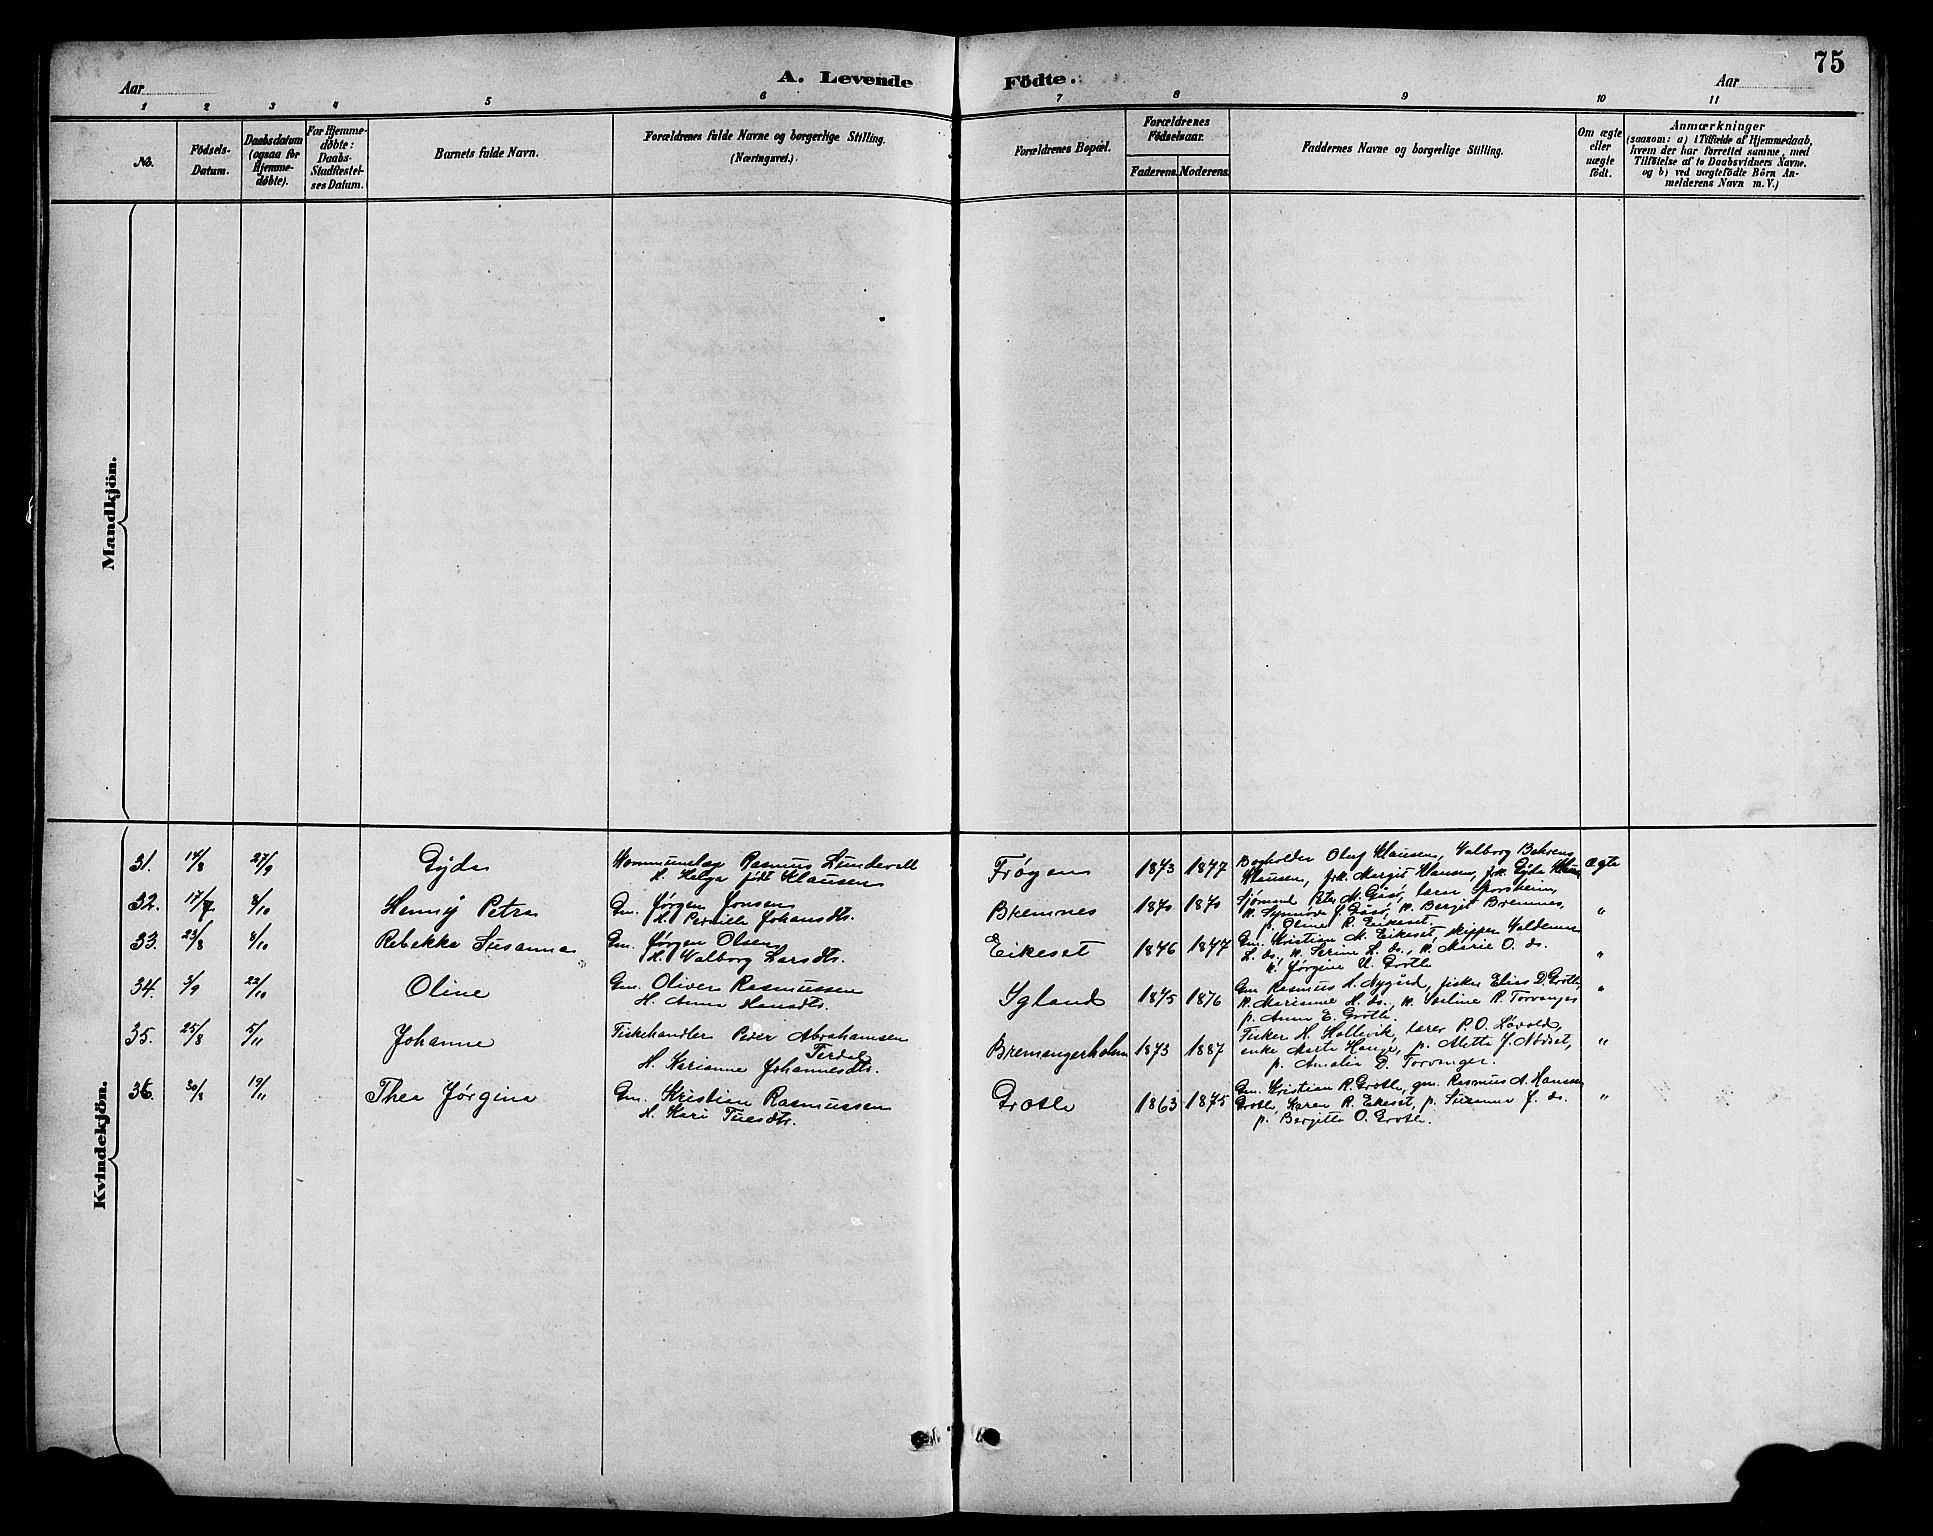 75
A. Levende Födte.
Aar
Aar
1 2 3 4 5 6 7 8 9 10 11
No.
Födsels-
Datum.
Daabsdatum
(ogsaa for
Hjemme-
døbte).
For Hjemme-
døbte:
Daabs-
Stadfæstel-
ses Datum.
Barnets fulde Navn.
Forældrenes fulde Navne og borgerlige Stilling.
(Næringsvei.)
Forældrenes Bopæl.
Forældrenes
Födselsaar.
Faderens. Moderens.
Faddernes Navne og borgerlige Stilling.
Om ægte
eller
uægte
födt.
Anmærkninger
(saasom: a) i Tilfælde af Hjemmedaab,
hvem der har forrettet samme, med
Tilföielse af to Daabsvidners Navne.
og b) ved uægtefödte Börn An-
melderens Navn m. V.)
Mandkjön.
Kvindekjön.
31. 14/8 27/9 Gyda Kommunelæge Rasmus Lundevall
H. Helga født Klausen
Frøyen 1873 1877 Bogholder Oluf Klausen, Valborg Behrens
Klausen, frk. Margit Klausen, frk. Gyda Ægte
32. 17/7 4/10 Henny Petra Gm. Jørgen Jonsen
H. Pernille Johansdtr.
Bremnes 1870 1870 Sjømand Peter M. Gåsø, lærer
K. Synnøve J. Gåsø, K. Bergit Bremnes,
p. Oline R. Eikeset. "
33. 23/8 4/10 Rebekka Susanna Gm. Jørgen Olsen
H. Valborg Larsdtr.
Eikeset 1846 1847 Gm. Kristian M. Eikeset, skipper Valdemar
L. ds., K. Serine L. ds., K. Marie O. ds.
K. Jørgine U. Grotle "
34. 3/9 22/10 Oline Gm. Oliver Rasmussen
H. Anna Hansdtr.
Igland 1875 1876 Gm Rasmus A. Nygård, fisker Elias D. Grotle,
K. Marianne H. ds., K. R. Torvanger
p. Anna E. Grotle. "
35. 25/8 5/11 Johanne Fiskehandler Peder Abrahamsen
Terdal
H. Karianne Johannesdtr.
Bremangerholm 1873 1887 Fisker H. Hallevik, lærer P. O. Løvold,
enke Marta Hauge, p. Alette J. Nødset,
p. Amalia D. Torvanger. "
36. 30/8 19/11 Thea Jørgina Gm. Kristian Rasmussen
H. Kari Tuesdtr.
Grotle 1863 1875 Gm. Kristian R. Grotle, gm. Rasmus A. Hansen
Grotle, Karen R. Eikeset, p. Susanna J. ds.
p. Bergitte O. Grotle. "